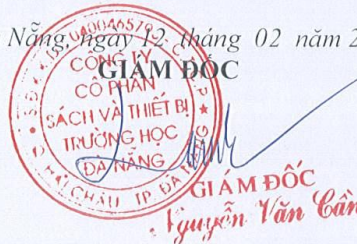 Nẵng, ngày 12 tháng 02 năm 2
GIÁM ĐỐC
CÔNG TY
CỔ PHẦN
SÁCH VÀ THIẾT BỊ
TRƯỜNG HỌC
ĐÀ NẴNG
HẢI CHÂU TP. ĐÀ NẴNG
GIÁM ĐỐC
Nguyễn Văn Cần